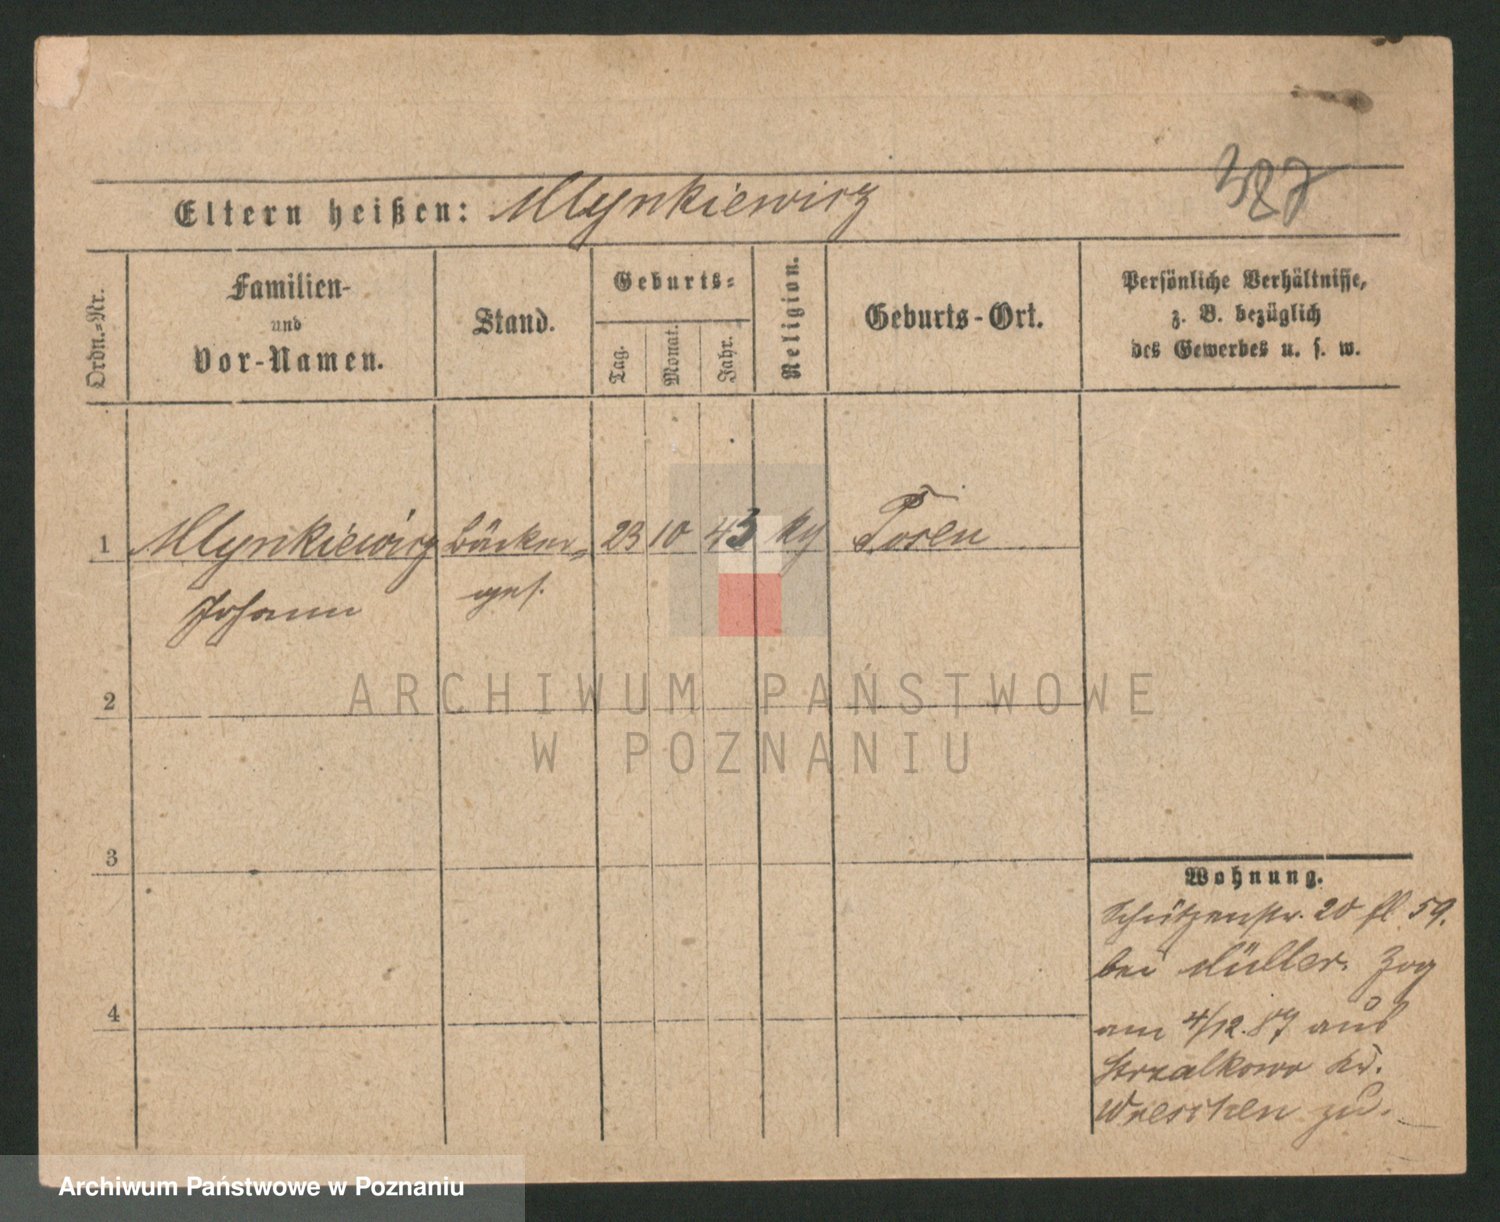 387
Eltern heißen: Mlynkiewicz
Ordn.=Nr.
Familien-
und
Vor-Namen.
Stand.
Geburts=
Tag.
Monat.
Jahr.
Religion.
Geburts-Ort.
Persönliche Verhältnisse,
z. B. bezüglich
des Gewerbes u. s. w.
1 Mlynkiewicz Bäcker= 23 10 43 Posen
Johann ges.
2
3
4
Wohnung.
Schützenstr. 20 59.
bei Müller. Zog
am 4/12.87 aus
Strzalkowo Kr.
Wreschen zu.
ARCHIWUM PAŃSTWOWE
W POZNANIU
Archiwum Państwowe w Poznaniu